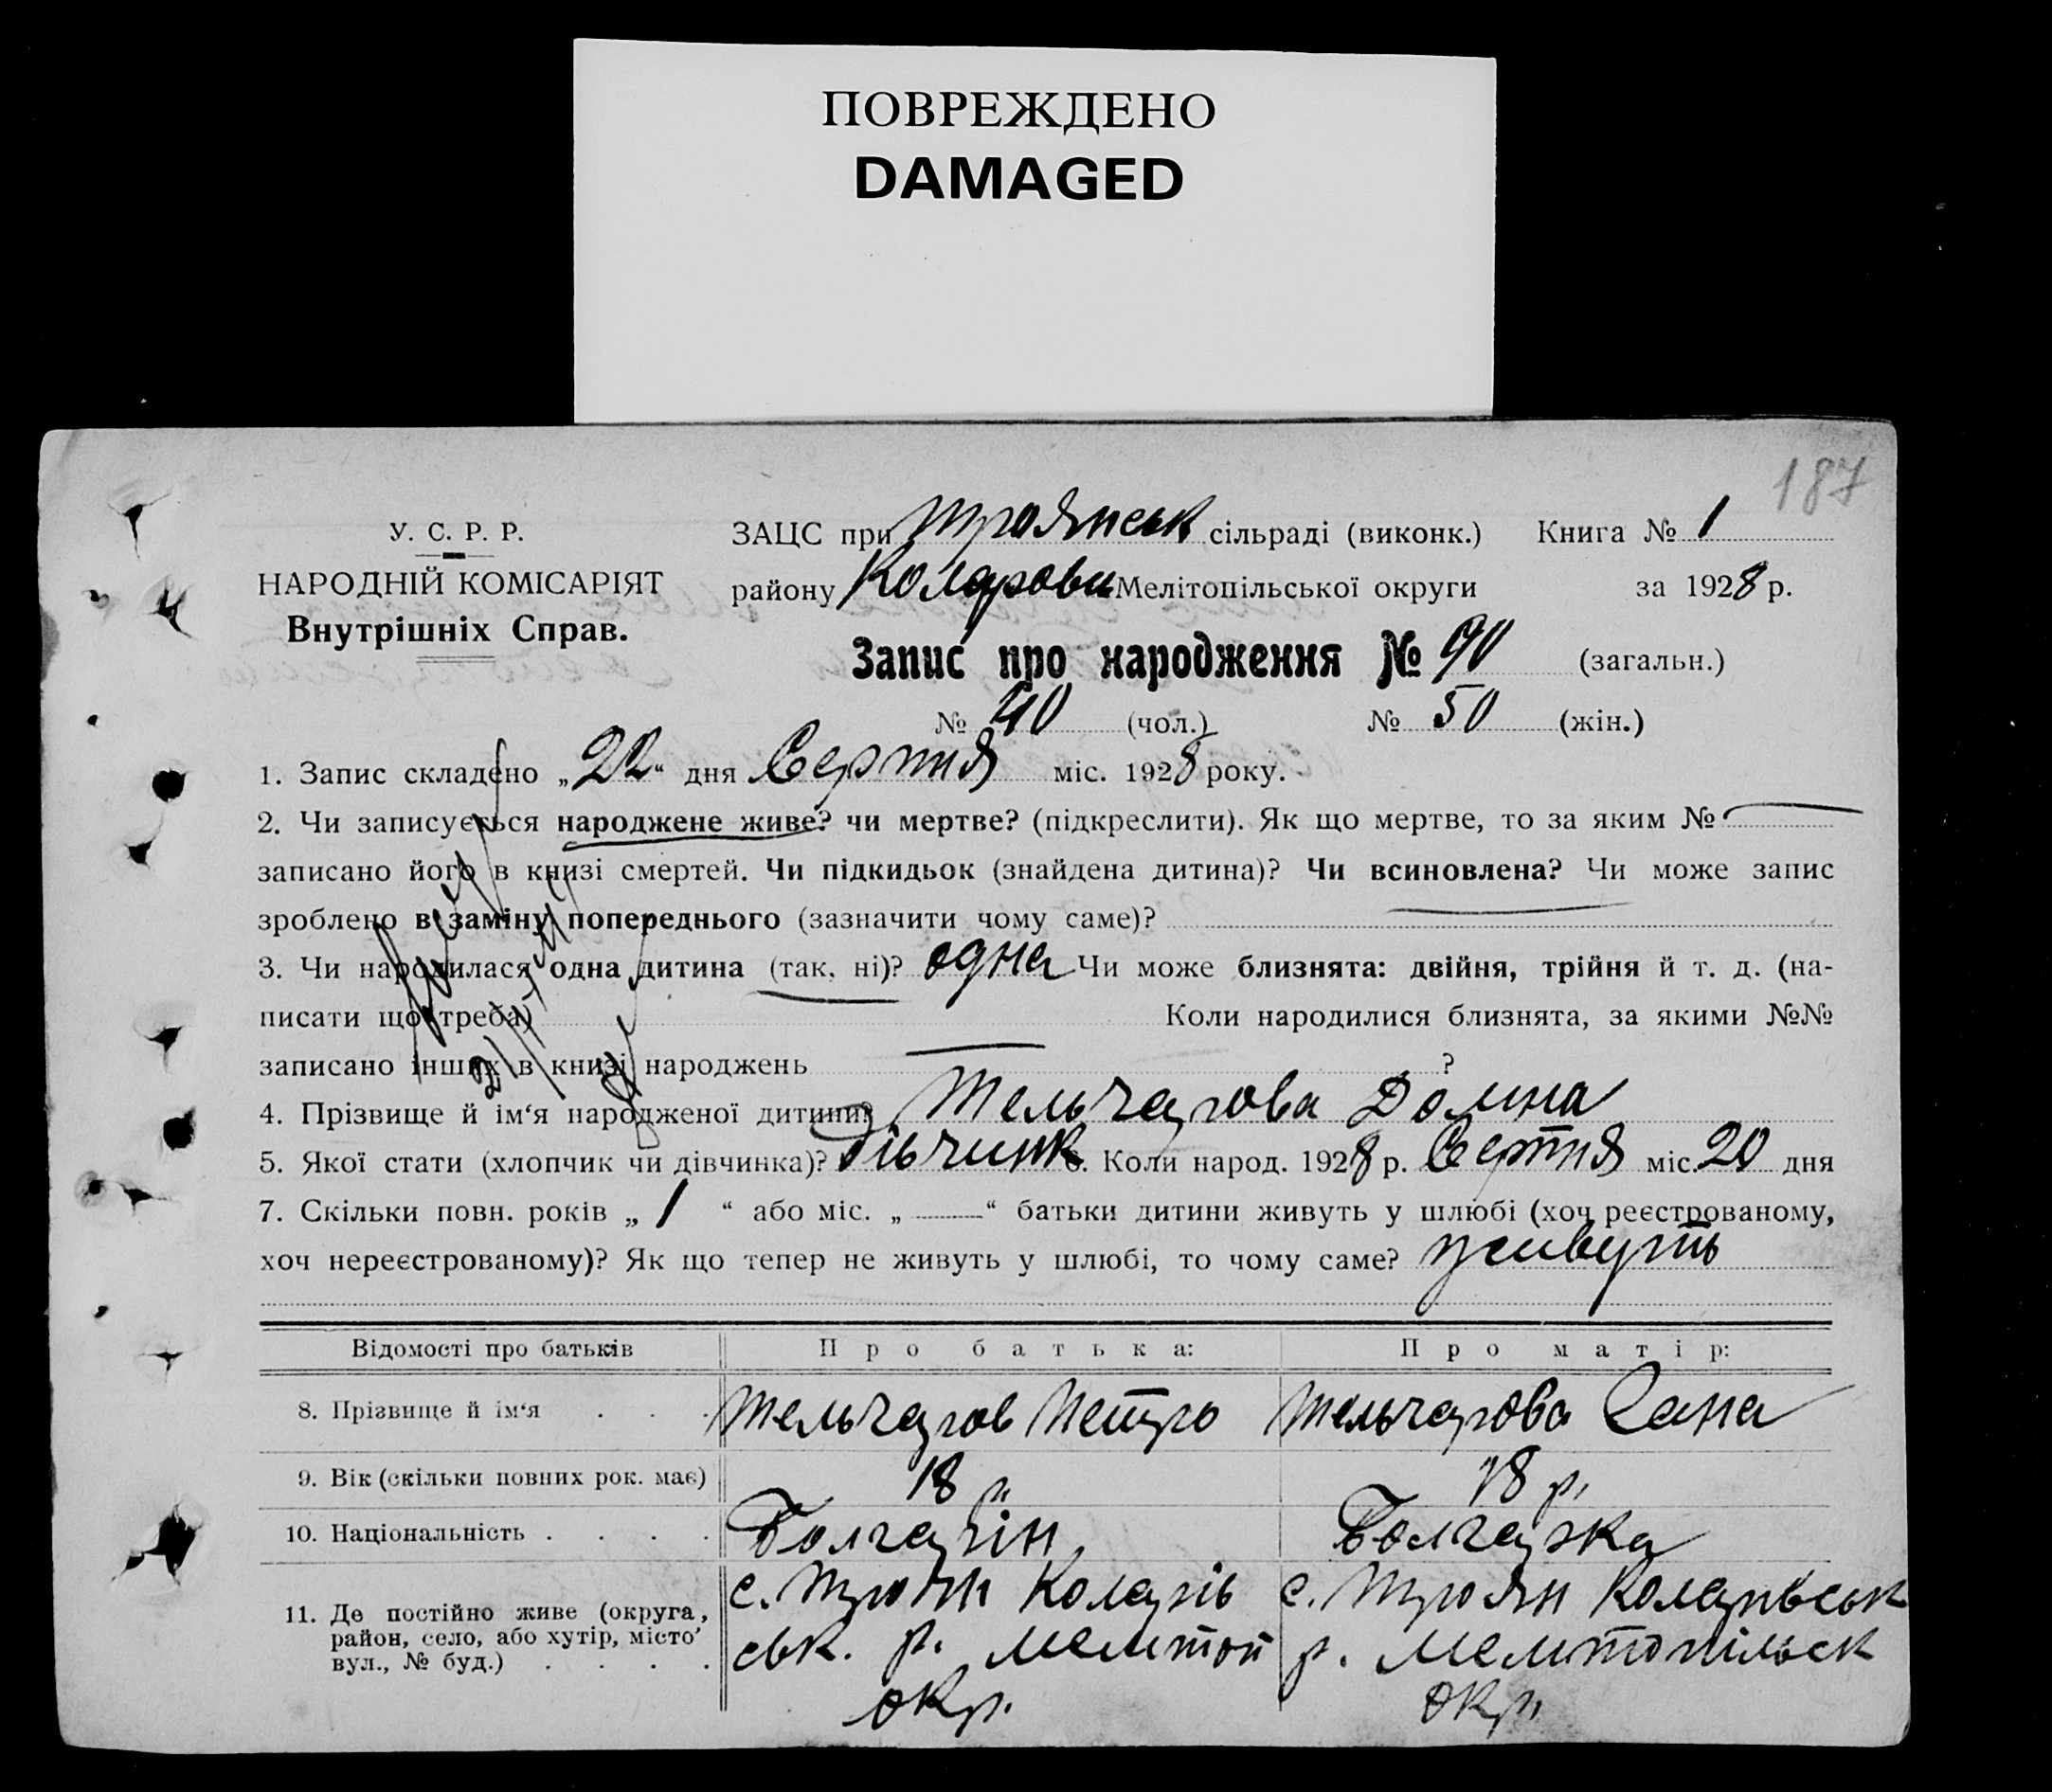 ПОВРЕЖДЕНО
DAMAGED
187
У. С. Р. Р.
НАРОДНІЙ КОМІСАРІЯТ
Внутрішніх Справ.
ЗАЦС при Троянськ сільраді (виконк.) Книга № 1
району Коларови Мелітопільської округи за 1928 р.
Запис про народження № 90 (загальн.)
№ 40 (чол.) № 50 (жін.)
1. Запис складено „22“ дня Серпня міс. 1928 року.
2. Чи записується народжене живе? чи мертве? (підкреслити). Як що мертве, то за яким №
записано його в книзі смертей. Чи підкидьок (знайдена дитина)? Чи всиновлена? Чи може запис
зроблено в заміну попереднього (зазначити чому саме)?
3. Чи народилася одна дитина (так, ні)? одна Чи може близнята: двійня, трійня й т. д. (на-
писати що треба) Коли народилися близнята, за якими №№
записано інших в книзі народжень ?
4. Прізвище й ім‘я народженої дитини? Тельчарова Домна
5. Якої стати (хлопчик чи дівчинка)? дівчинк 6. Коли народ. 1928 р. Серпня міс. 20 дня
7. Скільки повн. років „ 1 “ або міс. „ — “ батьки дитини живуть у шлюбі (хоч реєстрованому,
хоч нереєстрованому)? Як що тепер не живуть у шлюбі, то чому саме? живуть
Відомості про батьків Про батька: Про матір:
8. Прізвище й ім‘я . . . Тельчаров Петро Тельчарова
9. Вік (скільки повних рок. має) 18 р. 18 р.
10. Національність . . . . Болгарін Болгарка
11. Де постійно живе (округа, район, село, або хутір, місто, вул., № буд.) . . . .
с. Троян Коларів
ськ. р. Мелитоп
окр.
с. Троян Коларівськ
р. Мелитопільськ
окр.